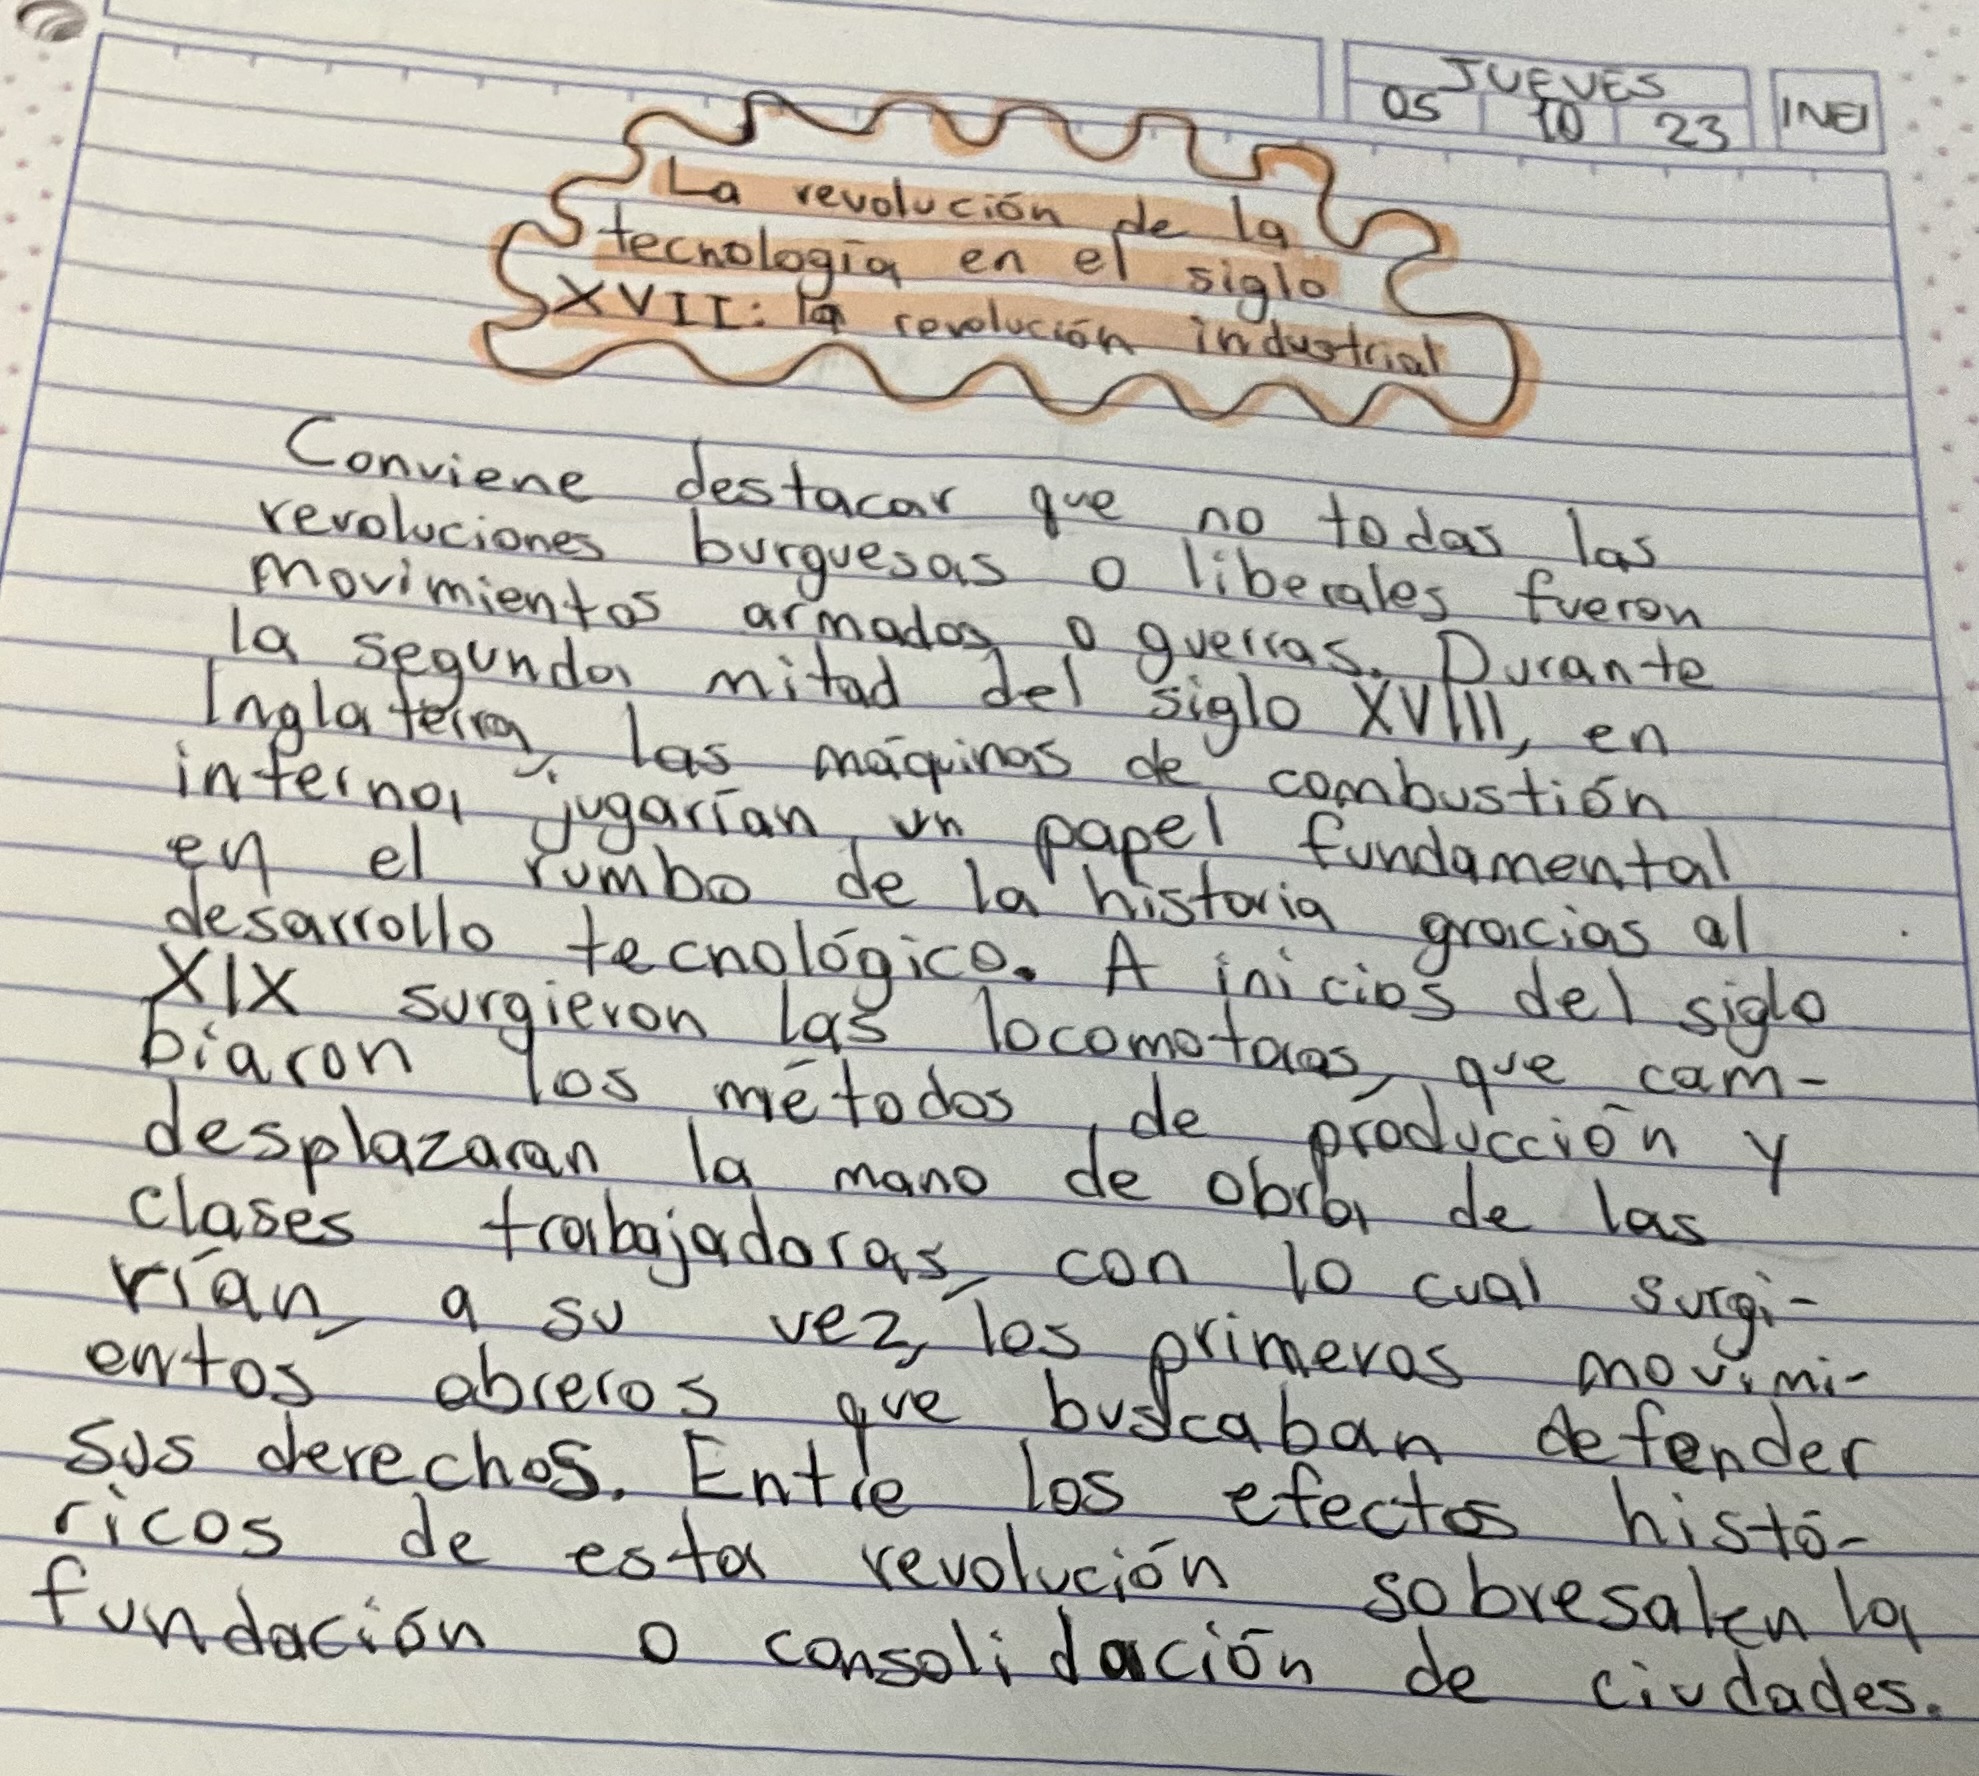 JUEVES
05 10 23
INEI
La revolución de la
tecnología en el siglo
XVII: la revolución industrial
Conviene destacar que no todas las
revoluciones burguesas o liberales fueron
movimientos armados o guerras. Durante
la segunda mitad del siglo XVIII, en
Inglaterra, las máquinas de combustión
interna, jugarían un papel fundamental
en el rumbo de la historia gracias al
desarrollo tecnológico. A inicios del siglo
XIX surgieron las locomotoras, que cam-
biaron los métodos de producción y
desplazaran la mano de obra de las
clases trabajadoras, con lo cual surgi-
rían, a su vez, los primeros movimi-
entos obreros que buscaban defender
sus derechos. Entre los efectos histó-
ricos de esta revolución sobresalen la
fundación o consolidación de ciudades.